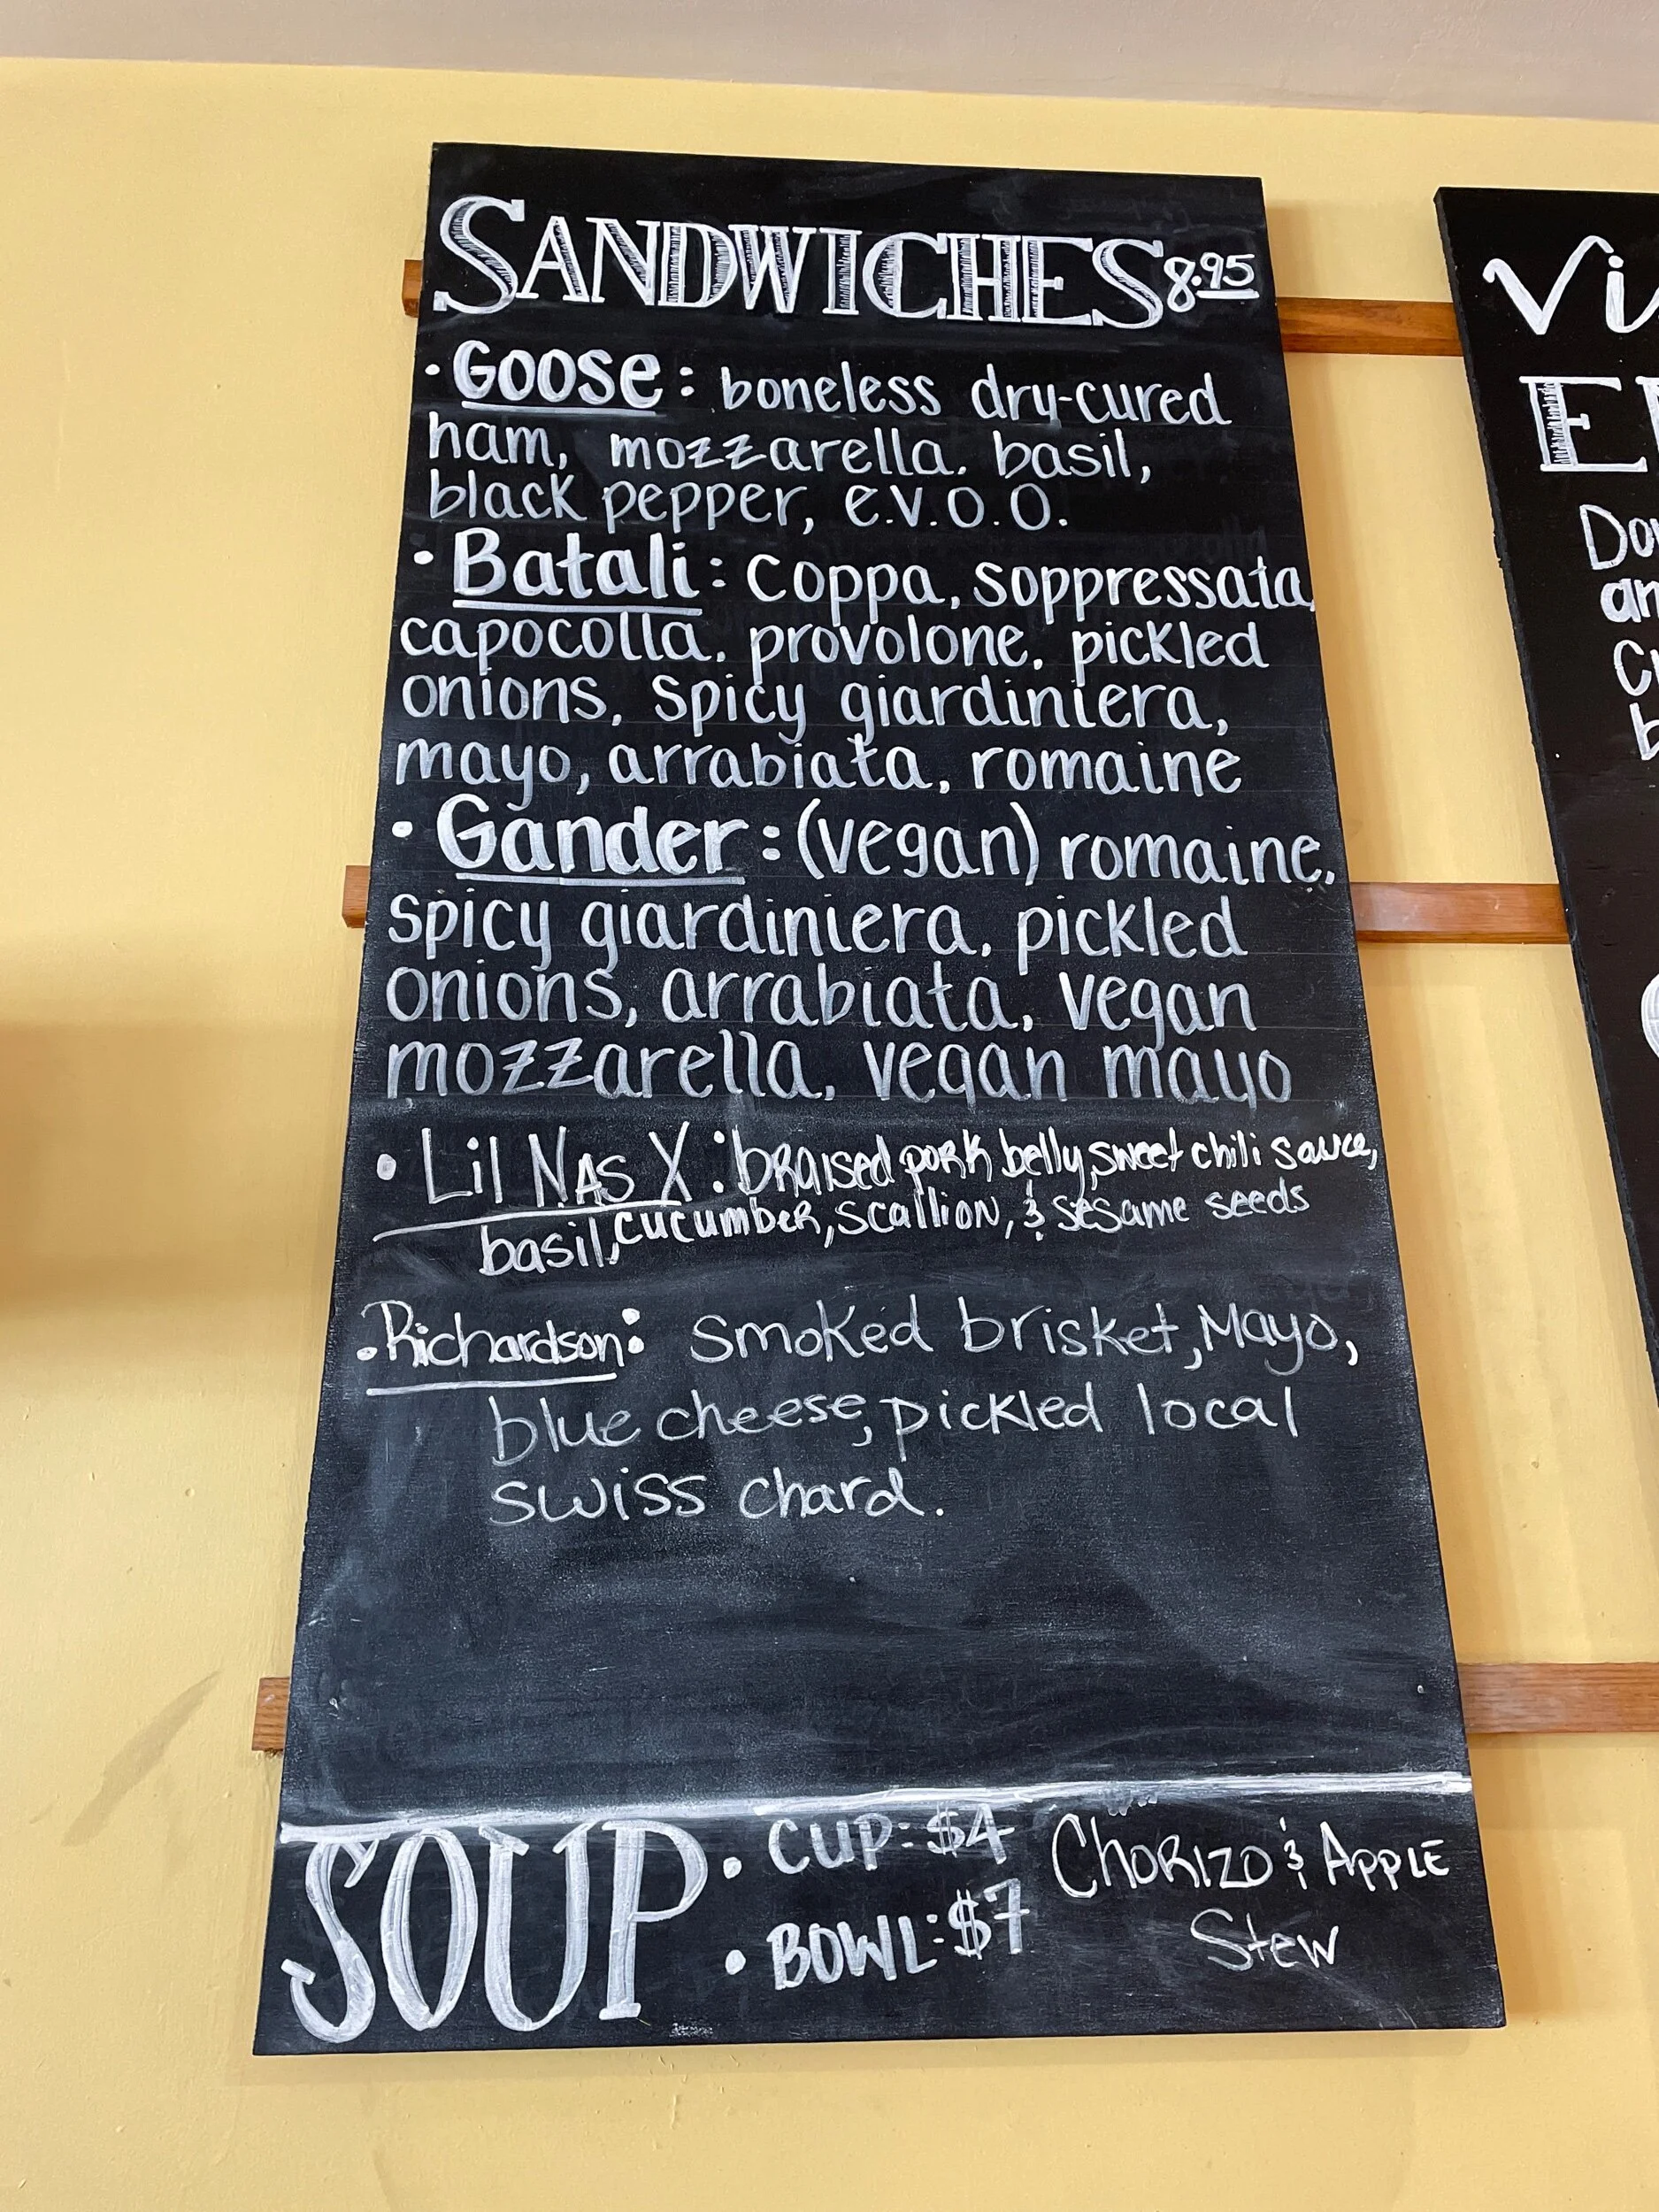 SANDWICHES 8.95
· GOOSE: boneless dry-cured
ham, mozzarella. basil,
black pepper, e.v.o.o.
· Batali: Coppa, soppressata,
capocolla, provolone, pickled
onions, spicy giardiniera,
mayo, arrabiata, romaine
· Gander: (vegan) romaine,
spicy giardiniera, pickled
onions, arrabiata, vegan
mozzarella, vegan mayo
· Lil NAS X: braised pork belly, sweet chili sauce,
basil, cucumber, scallion, & sesame seeds
· Richardson: smoked brisket, Mayo,
blue cheese, pickled local
swiss chard.
SOUP · CUP: $4 CHORIZO & APPLE
· BOWL: $7 Stew